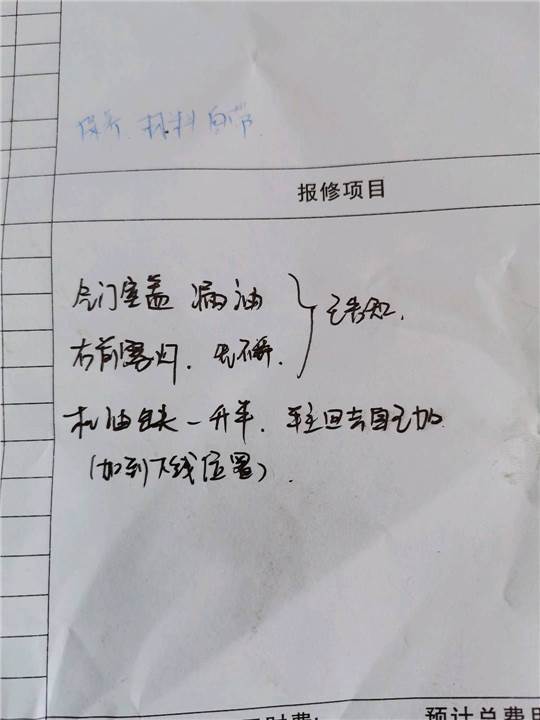 保养 材料自带
报修项目
气门室盖 漏油 } 已告知.
右前雾灯. 不亮.
机油缺一升半. 车主回去自己加
(加到下线位置).
预计总费用